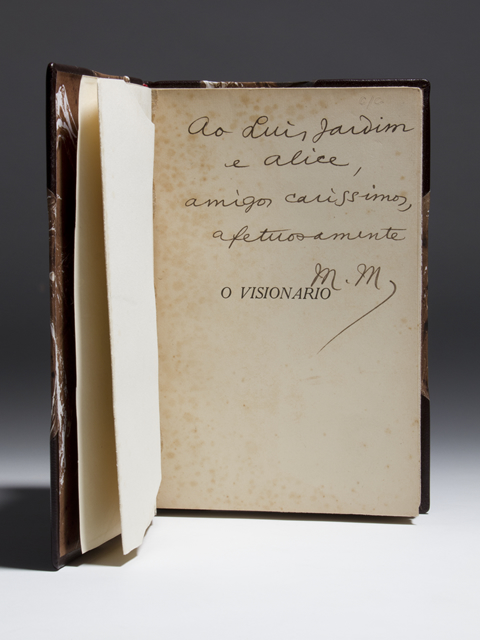 Ao Luis Jardim
e Alice,
amigos carissimos,
afetuosamente
M. M
O VISIONARIO